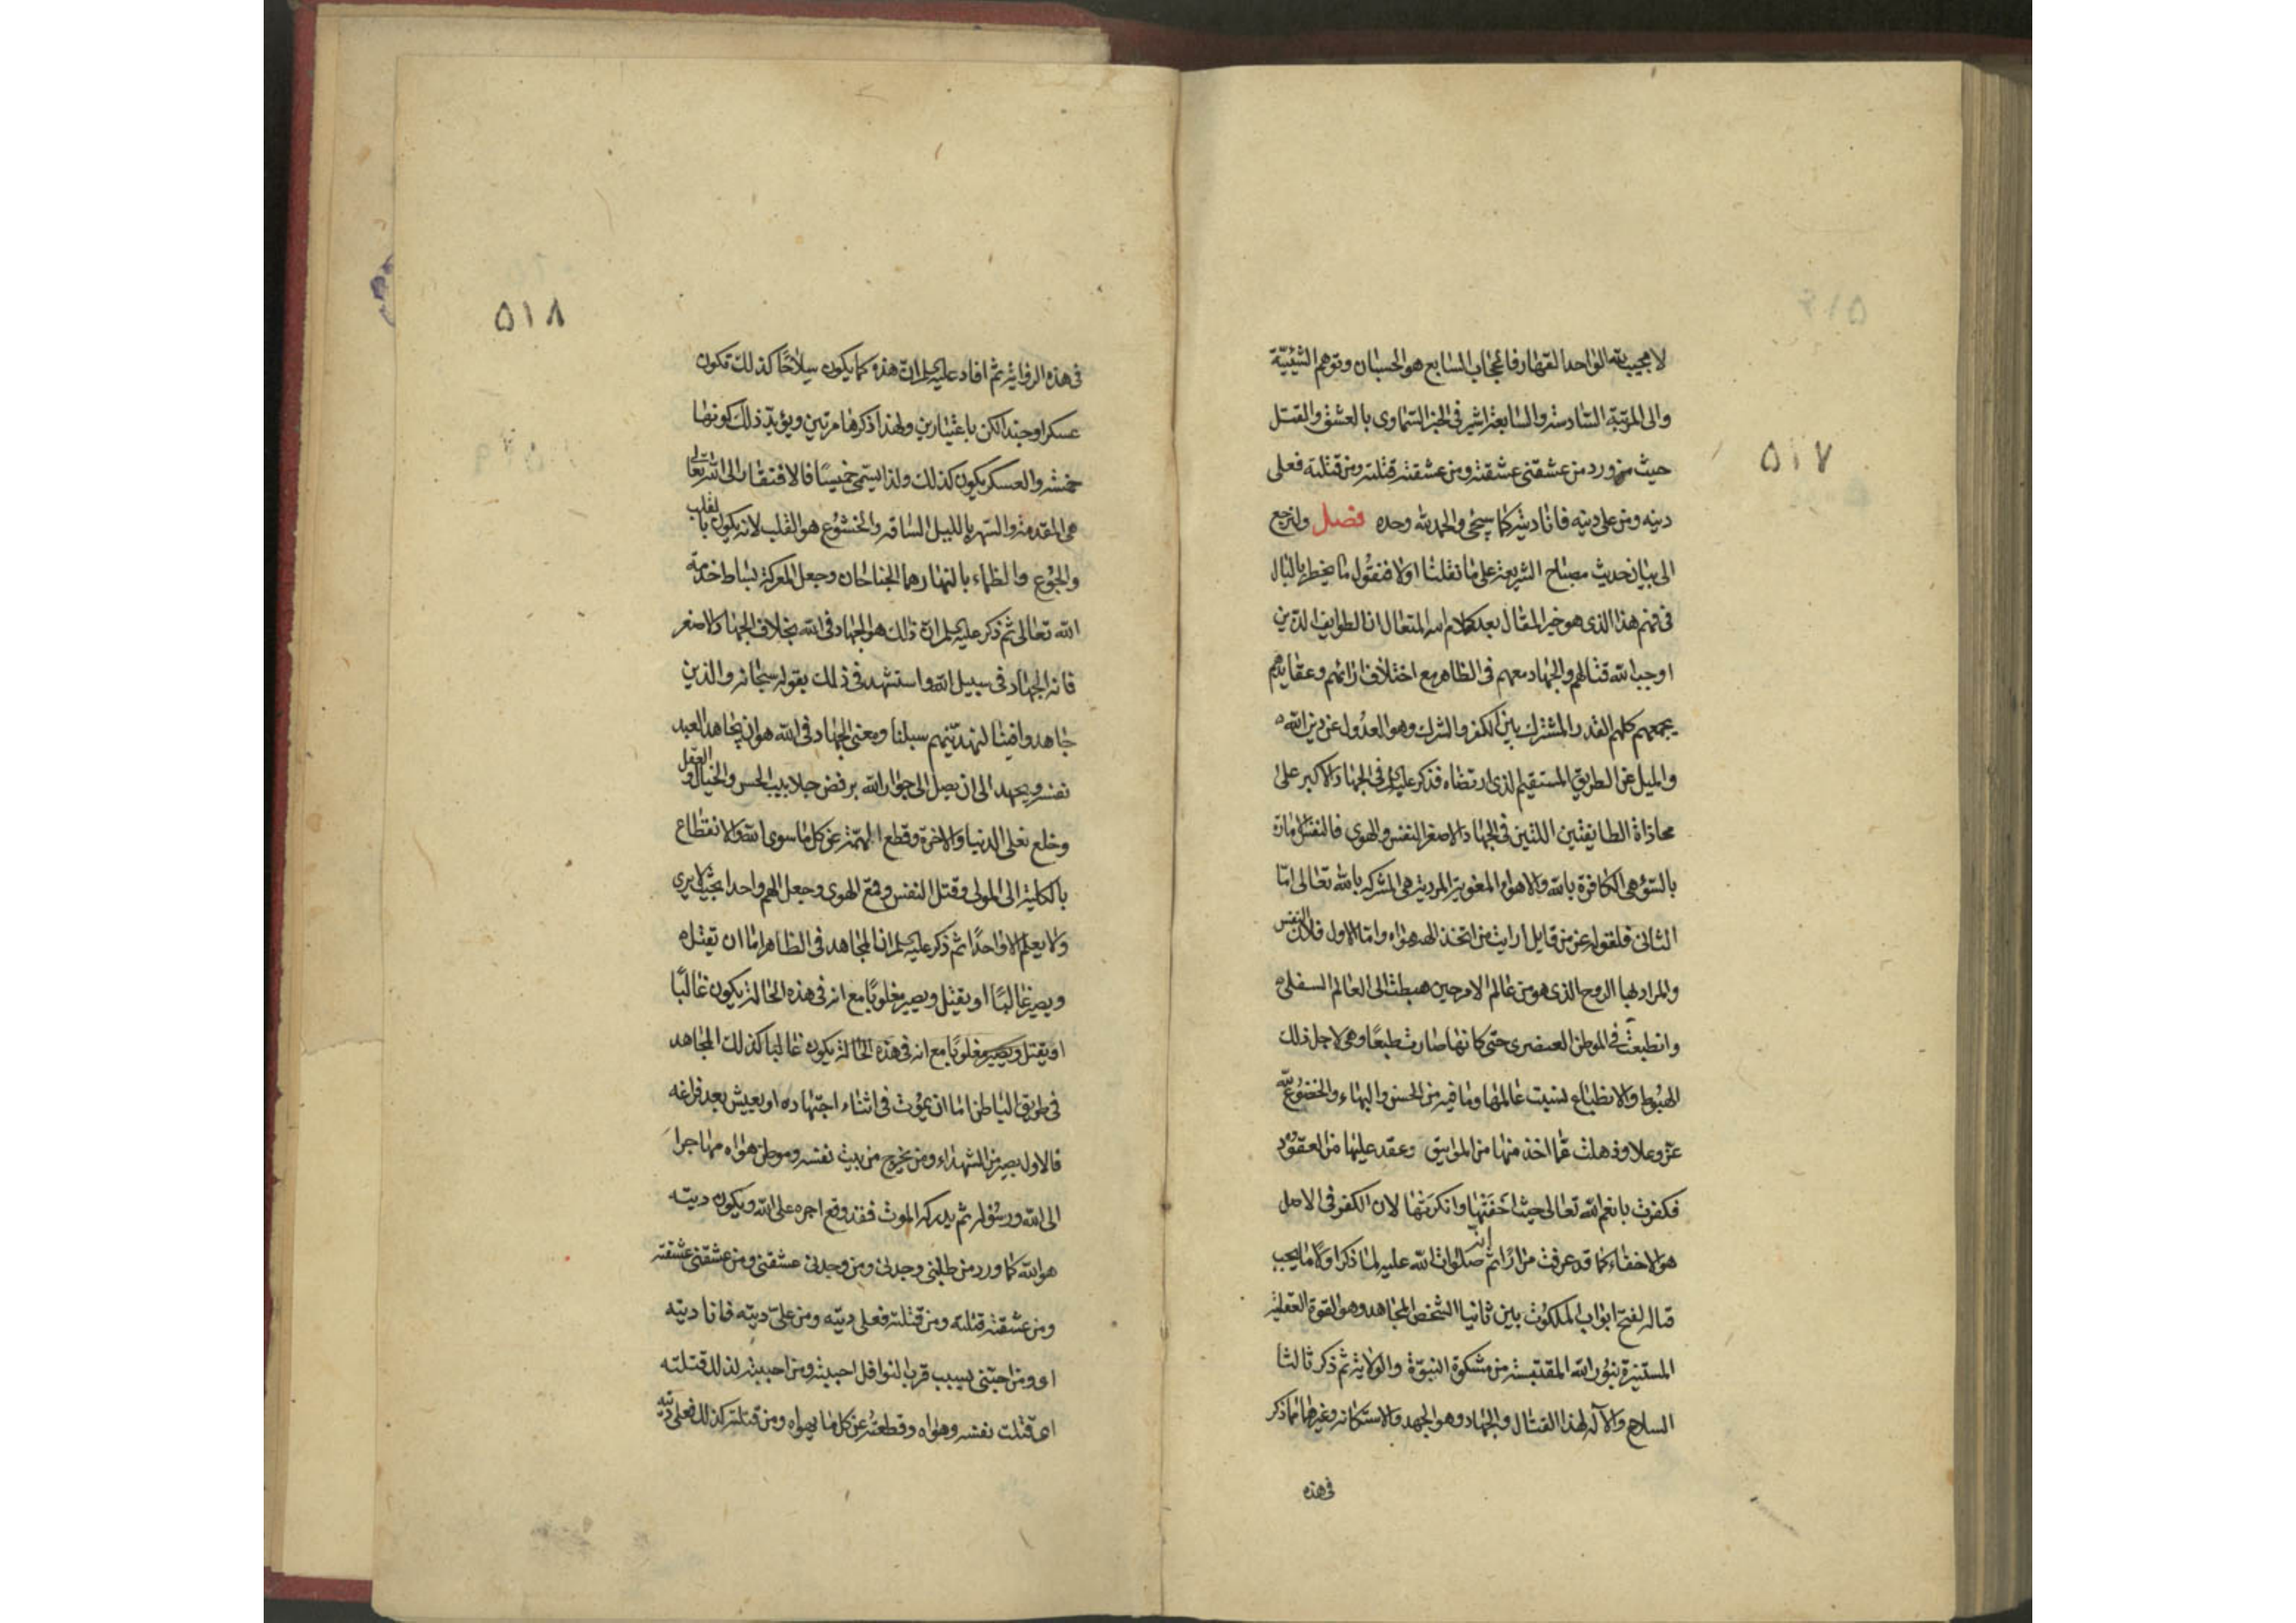 لا مجيب لله الواحد القهار فالحجاب السابع هو الحسبان وتوهم الشيئية
والى المرتبة السادسة والسابعة اشير فى الخبر السماوى بالعشق والقتل
حيث ورد من عشقنى عشقته ومن عشقته قتلته ومن قتلته فعلى
ديته ومن على ديته فانا ديته كما سيجئ والحمد لله وحده فصل ولنرجع
الى بيان حديث مصباح الشريعة على ما نقلنا اولا فنقول ما يخطر بالبال
فى فهم هذا الذى هو خير المقال بعد كلام الله المتعال ان الطوايف الذين
اوجب الله قتالهم والجهاد معهم فى الظاهر مع اختلاف ارائهم وعقايدهم
يجمعهم كلهم القدر المشترك بين الكفر والشرك وهو العدول عن دين الله
والميل عن الطريق المستقيم الذى ارتضاه فذكر عليه السلم فى الجهاد الاكبر على
محاذاة الطايفتين اللتين فى الجهاد الاصغر النفس والهوى فالنفس الامارة
بالسوء هى الكافرة بالله والاهواء المغوية المردية هى المشركة بالله تعالى امّا
الثانى فلقوله عز من قايل ارايت من اتخذ الهه هواه وامّا الاول فلان النفس
والمراد بها الروح الذى هو من عالم الامر حين هبطت الى العالم السفلى
وانطبعت فى الموطن العنصرى حتى كانها صارت طبعًا وهى لاجل ذلك
الهبوط والانطباع نسيت عالمها وما فيه من الحسن والبهاء والخضوع لله
عز وعلا وذهلت عمّا اخذ منها من المواثيق وعقد عليها من العقود
فكفرت بانعم الله تعالى حيث اخفتها وانكرتها لان الكفر فى الاصل
هو الاخفاء كما قد عرفت مرارًا ثم انه صلوات الله عليه لما ذكر اولًا ما يجب
قتاله لفتح ابواب الملكوت بين ثانيا الشخص المجاهد وهو القوة العقلية
المستنيرة بنور الله المقتبسة من مشكوة النبوّة والولاية ثم ذكر ثالثا
السلاح والآلة لهذا القتال والجهاد وهو الجهد والاستكانة وغيرهما مما ذكر
فى هذه
٥١٧
فى هذه الرواية ثم افاد عليه السلم ان هذه كما يكون سلاحًا كذلك تكون
عسكرا وجندا لكن باعتبارين ولهذا ذكرها مرتين ويؤيد ذلك كونها
خمسة والعسكر يكون كذلك ولذا يسمى خميسًا فالافتقار الى الله تعالى
هى المقدمة والسهر بالليل الساقة والخشوع هو القلب لانه يكون بالقلب
والجوع والظماء بالنهار هما الجناحان وجعل المعركة بساط خدمة
الله تعالى ثم ذكر عليه السلم ان ذلك هو الجهاد فى الله بخلاف الجهاد الاصغر
فانه الجهاد فى سبيل الله واستشهد فى ذلك بقوله سبحانه والذين
جاهدوا فينا لنهدينهم سبلنا ومعنى الجهاد فى الله هو ان يجاهد العبد
نفسه ويجهد الى ان يصل الى جوار الله برفض جلابيب الحس والخيال والعقل
وخلع نعلى الدنيا والاخرة وقطع الهمّة عن كل ما سوى الله والانقطاع
بالكلية الى المولى وقتل النفس وقمع الهوى وجعل الهم واحدا بحيث لا يرى
ولا يعلم الا واحدًا ثم ذكر عليه السلم ان المجاهد فى الظاهر اما ان يقتل
ويصير غالبًا او يقتل ويصير مغلوبًا مع انه فى هذه الحالة يكون غالبًا
او يقتل ويصير مغلوبًا مع انه فى هذه الحالة يكون غالبا كذلك المجاهد
فى طريق الباطن اما ان يموت فى اثناء اجتهاده او يعيش بعد فراغه
فالاول يصير من الشهداء ومن يخرج من بيت نفسه وموطن هواه مهاجرا
الى الله ورسوله ثم يدركه الموت فقد وقع اجره على الله ويكون ديته
هو الله كما ورد من طلبنى وجدنى ومن وجدنى عشقنى ومن عشقنى عشقته
ومن عشقته قتلته ومن قتلته فعلى ديته ومن على ديته فانا ديته
او ومن احبنى بسبب قرب النوافل احببته ومن احببته لذلك قتلته
اى قتلت نفسه وهواه وقطعته عن كل ما يهواه ومن قتلته كذلك فعلى ديته
٥١٨